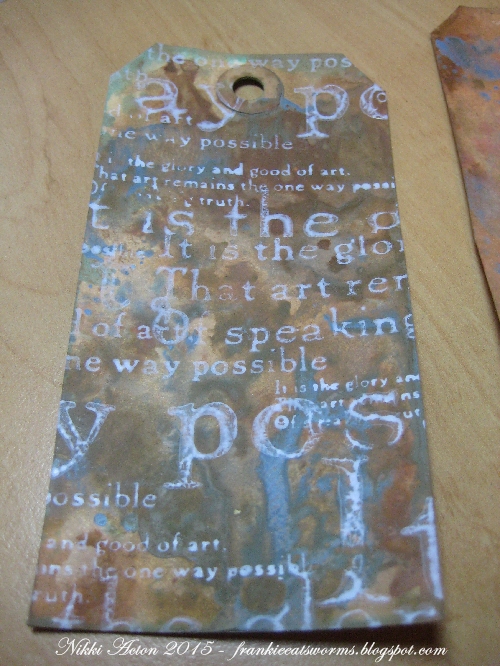 the one way pos
ay po
of art
ne way possible
the glory and good of art.
That art remains the one way possi
truth.
t is the g
It is the glor
That art rem
d of art
Of speaking
ne way possible
It is the glory and
y pos
possible
and good of art.
ns the one way possibl
ruth.
Nikki Acton 2015 - frankieeatsworms.blogspot.com